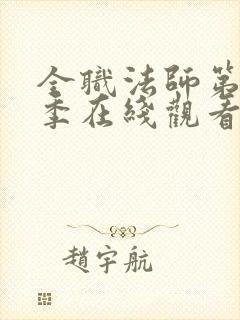 全職法師第
季在綫觀看
趙宇航